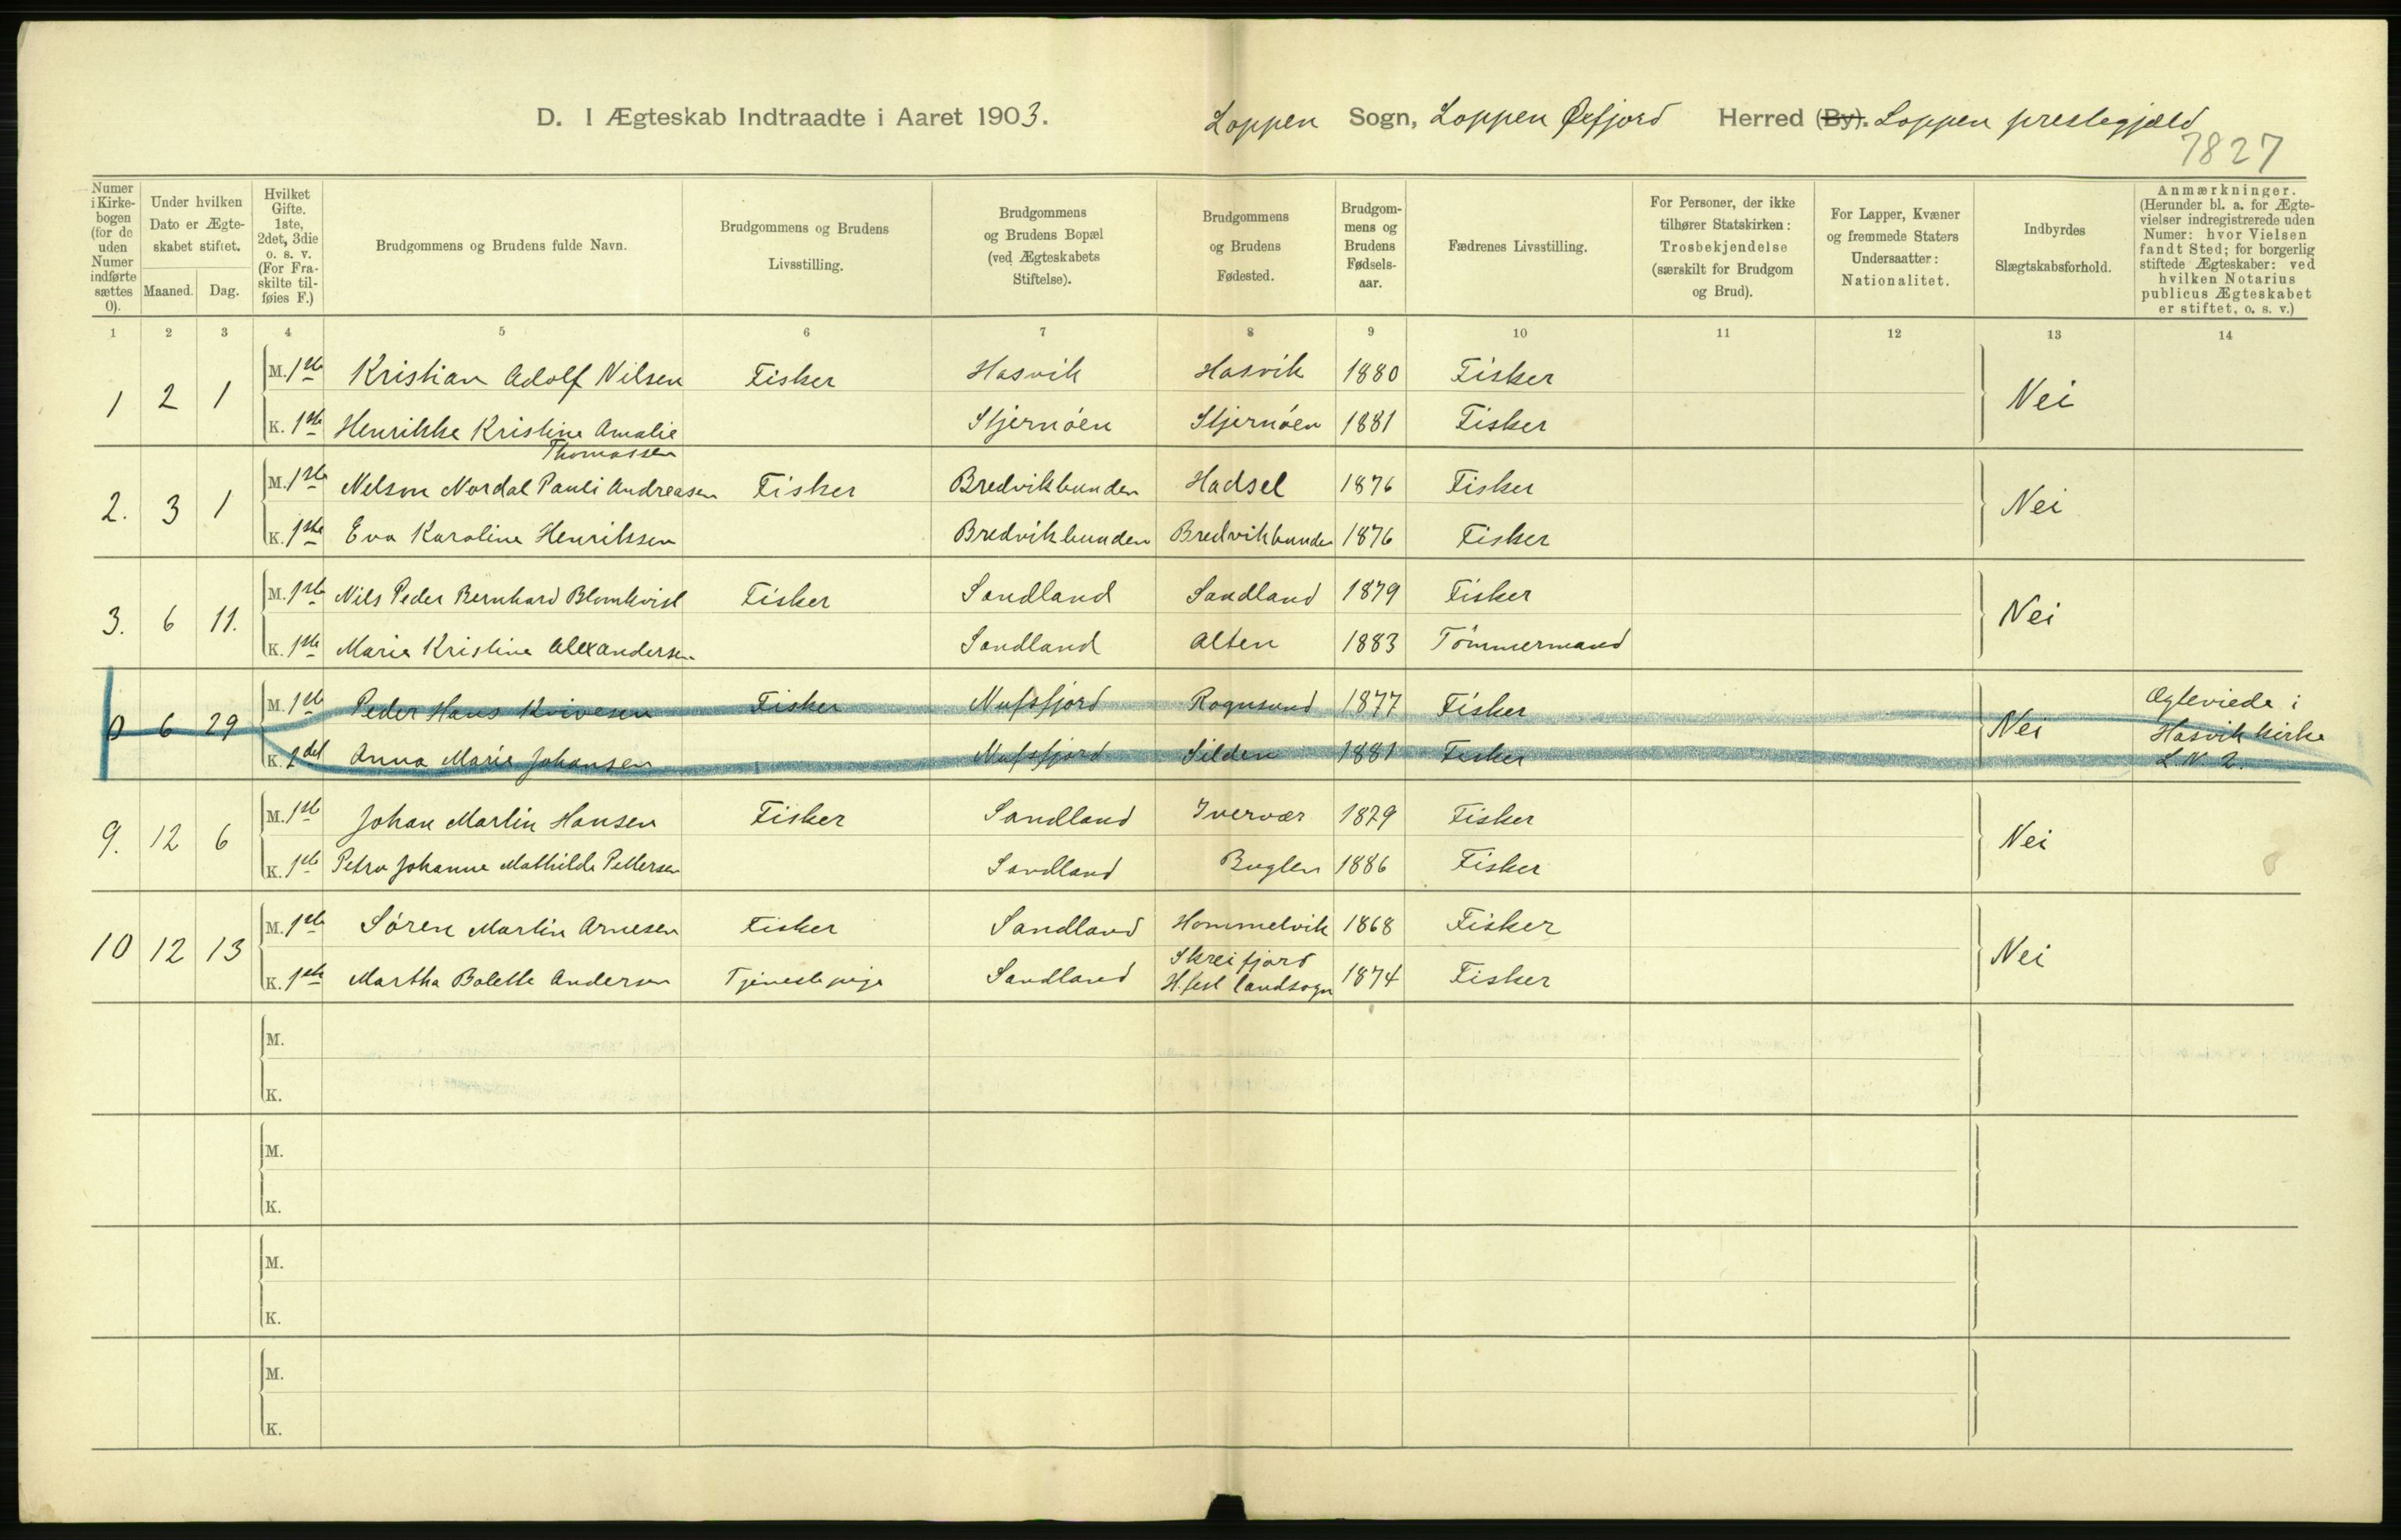 D. I Ægteskab Indtraadte i Aaret 1903. Loppen Sogn, Loppen Øxfjord Herred (By). Loppen prestegjæld
7827
Numer i Kirkebogen (for de uden Numer indførte sættes 0).
Under hvilken Dato er Ægteskabet stiftet.
Maaned. Dag.
Hvilket Gifte. 1ste, 2det, 3die o. s. v. (For Fraskilte tilføies F.)
Brudgommens og Brudens fulde Navn.
Brudgommens og Brudens Livsstilling.
Brudgommens og Brudens Bopæl (ved Ægteskabets Stiftelse).
Brudgommens og Brudens Fødested.
Brudgommens og Brudens Fødselsaar.
Fædrenes Livsstilling.
For Personer, der ikke tilhører Statskirken: Trosbekjendelse (særskilt for Brudgom og Brud).
For Lapper, Kvæner og fremmede Staters Undersaatter: Nationalitet.
Indbyrdes Slægtskabsforhold.
Anmærkninger. (Herunder bl. a. for Ægtevielser indregistrerede uden Numer: hvor Vielsen fandt Sted; for borgerlig stiftede Ægteskaber: ved hvilken Notarius publicus Ægteskabet er stiftet, o. s. v.)
1 2 3 4 5 6 7 8 9 10 11 12 13 14
1 2 1 M. 1ste Kristian Adolf Nilsen Fisker Hasvik Hasvik 1880 Fisker Nei
K. 1ste Henrikke Kristine Amalie Thomassen Stjernöen Stjernöen 1881 Fisker
2. 3 1 M. 1ste Nelson Nordal Pauli Andreasen Fisker Bredvikbunden Hadsel 1876 Fisker Nei
K. 1ste Eva Karoline Henriksen Bredvikbunden Bredvikbunden 1876 Fisker
3. 6 11. M. 1ste Nils Peder Bernhard Blomkvist Fisker Sandland Sandland 1879 Fisker Nei
K. 1ste Marie Kristine Alexandersen Sandland Alten 1883 Tömmermand
0 6 29 M. 1ste Peder Hans Fisker Nufsfjord Rognsund 1877 Fisker Nei Ægteviede i
Hasvik kirke
K. 2det Anna Marie Johansen Nufsfjord Silden 1881 Fisker L. N. 2.
9. 12 6 M. 1ste Johan Martin Hansen Fisker Sandland Ivervær 1879 Fisker Nei
K. 1ste Petra Johanne Mathilde Pettersen Sandland Buglen 1886 Fisker
10 12 13 M. 1ste Sören Martin Arnesen Fisker Sandland Hommelvik 1868 Fisker Nei
K. 1ste Martha Bolette Andersen Tjenestepige Sandland Skreifjord H.fest landsogn 1874 Fisker
M.
K.
M.
K.
M.
K.
M.
K.